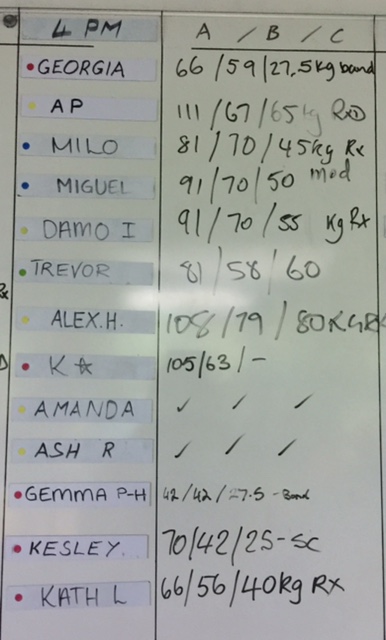 4 PM A / B / C
GEORGIA 66 / 59 / 27.5kg band
AP 111 / 67 / 65kg RxD
MILO 81 / 70 / 45kg Rx
MIGUEL 91 / 70 / 50 mod
DAMO I 91 / 70 / 55 kg Rx
TREVOR 81 / 58 / 60
ALEX.H. 108 / 79 / 80KG Rx
K☆ 105/63 / -
AMANDA ✓ / ✓ / ✓
ASH R ✓ / ✓ / ✓
GEMMA P-H 42/42/27.5 - Band
KESLEY. 70/42/25-SC
KATH L 66/56/40kg Rx